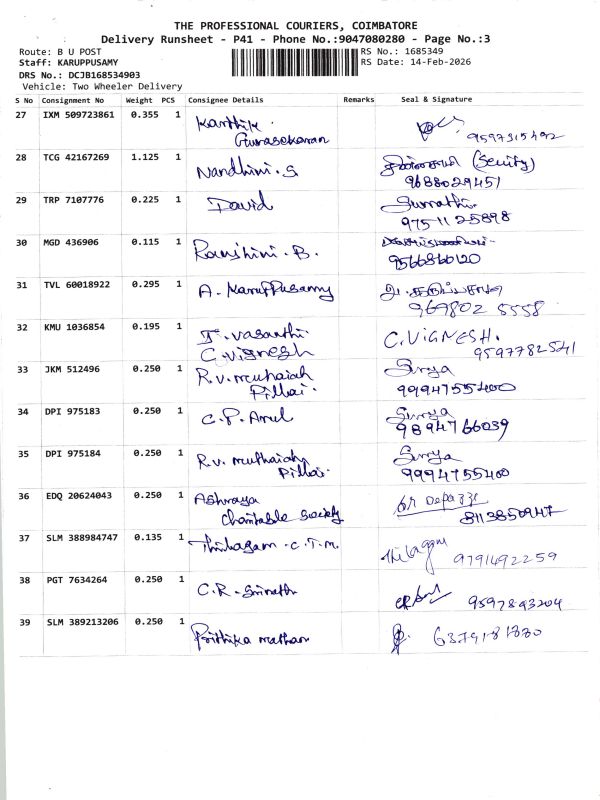 THE PROFESSIONAL COURIERS, COIMBATORE
Delivery Runsheet - P41 - Phone No.:9047080280 - Page No.:3
Route: B U POST RS No.: 1685349
Staff: KARUPPUSAMY RS Date: 14-Feb-2026
DRS No.: DCJB168534903
Vehicle: Two Wheeler Delivery
S No Consignment No Weight PCS Consignee Details Remarks Seal & Signature
27 IXM 509723861 0.355 1 Karthik Gunasekaran 9597315492
28 TCG 42167269 1.125 1 Nandhini. S (Secuity)
9688029451
29 TRP 7107776 0.225 1 David Sumathi.
9751125898
30 MGD 436906 0.115 1 B.
9566866120
31 TVL 60018922 0.295 1 A. Karuppusamy
969802 5558
32 KMU 1036854 0.195 1 T. Vasanthi. C. VIGNESH.
C. Vignesh 9597782541
33 JKM 512496 0.250 1 R.V. Muthaiah Surya
Pillai. 9994755400
34 DPI 975183 0.250 1 C.P. Arul Surya
9894766039
35 DPI 975184 0.250 1 R.V. Muthaiah Surya
Pillai. 9994755400
36 EDQ 20624043 0.250 1 Ashraya
Charitable Society 8113850947
37 SLM 388984747 0.135 1 Thilagam. C.T.M. Thilagam 9791492259
38 PGT 7634264 0.250 1 C.R. Srinath 9597893204
39 SLM 389213206 0.250 1 Prithika Mathan